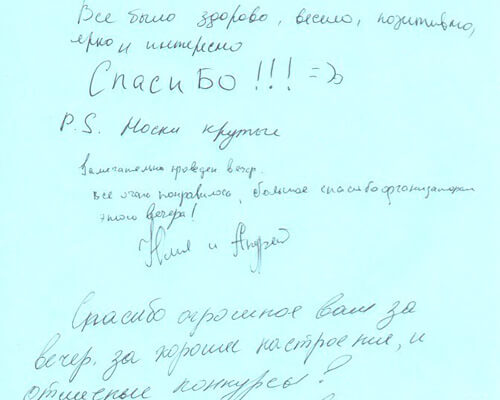 Все было здорово, весело, позитивно,
ярко и интересно
Спасибо!!! =)
P.S. Носки крутые
Замечательно проведен вечер.
Все очень понравилось, большое спасибо организаторам
этого вечера!
и Андрей
Спасибо огромное вам за
вечер. за хорошее настроение, и
отличные конкурсы!